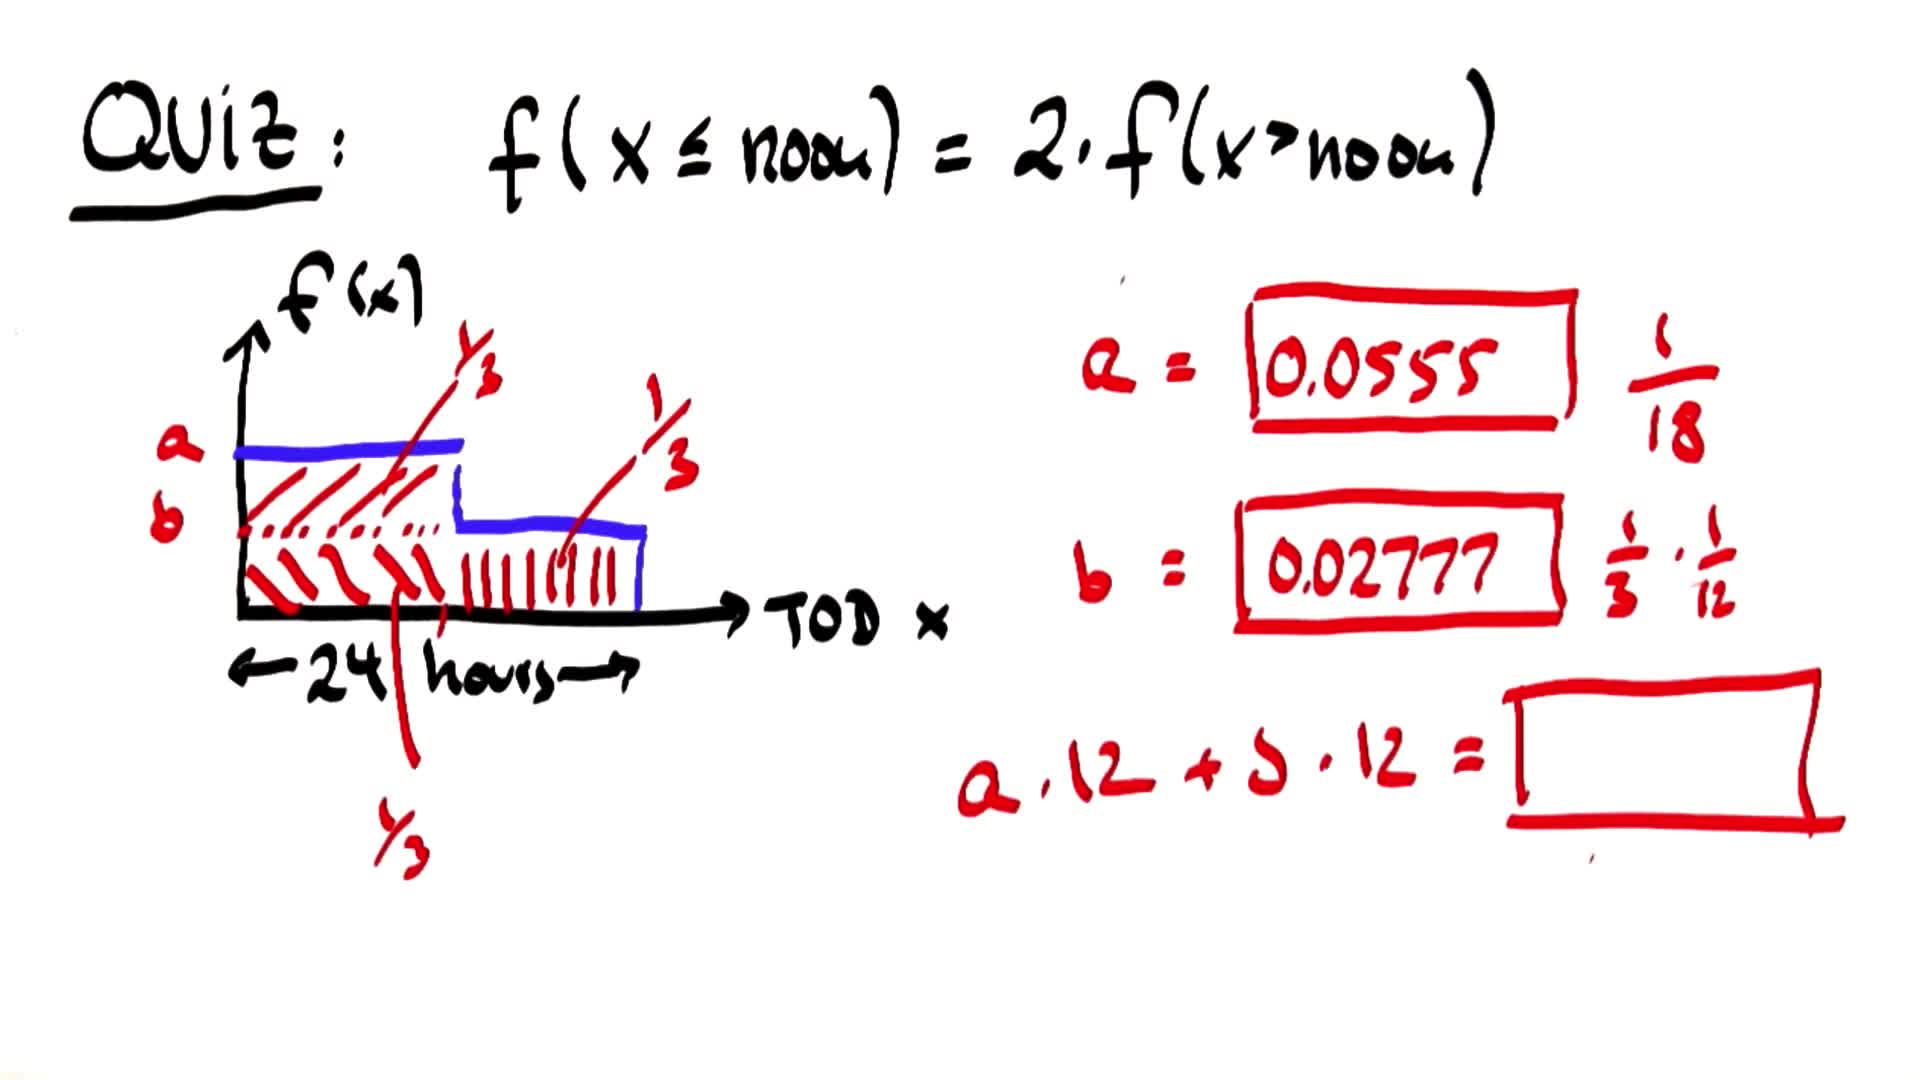 Quiz: f(x ≤ noon) = 2·f(x>noon)
f(x)
1/3
1/3
a
b
TOD x
24 hours
1/3
a = 0.0555 1/18
b = 0.02777 1/3 · 1/12
a·12 + b·12 =